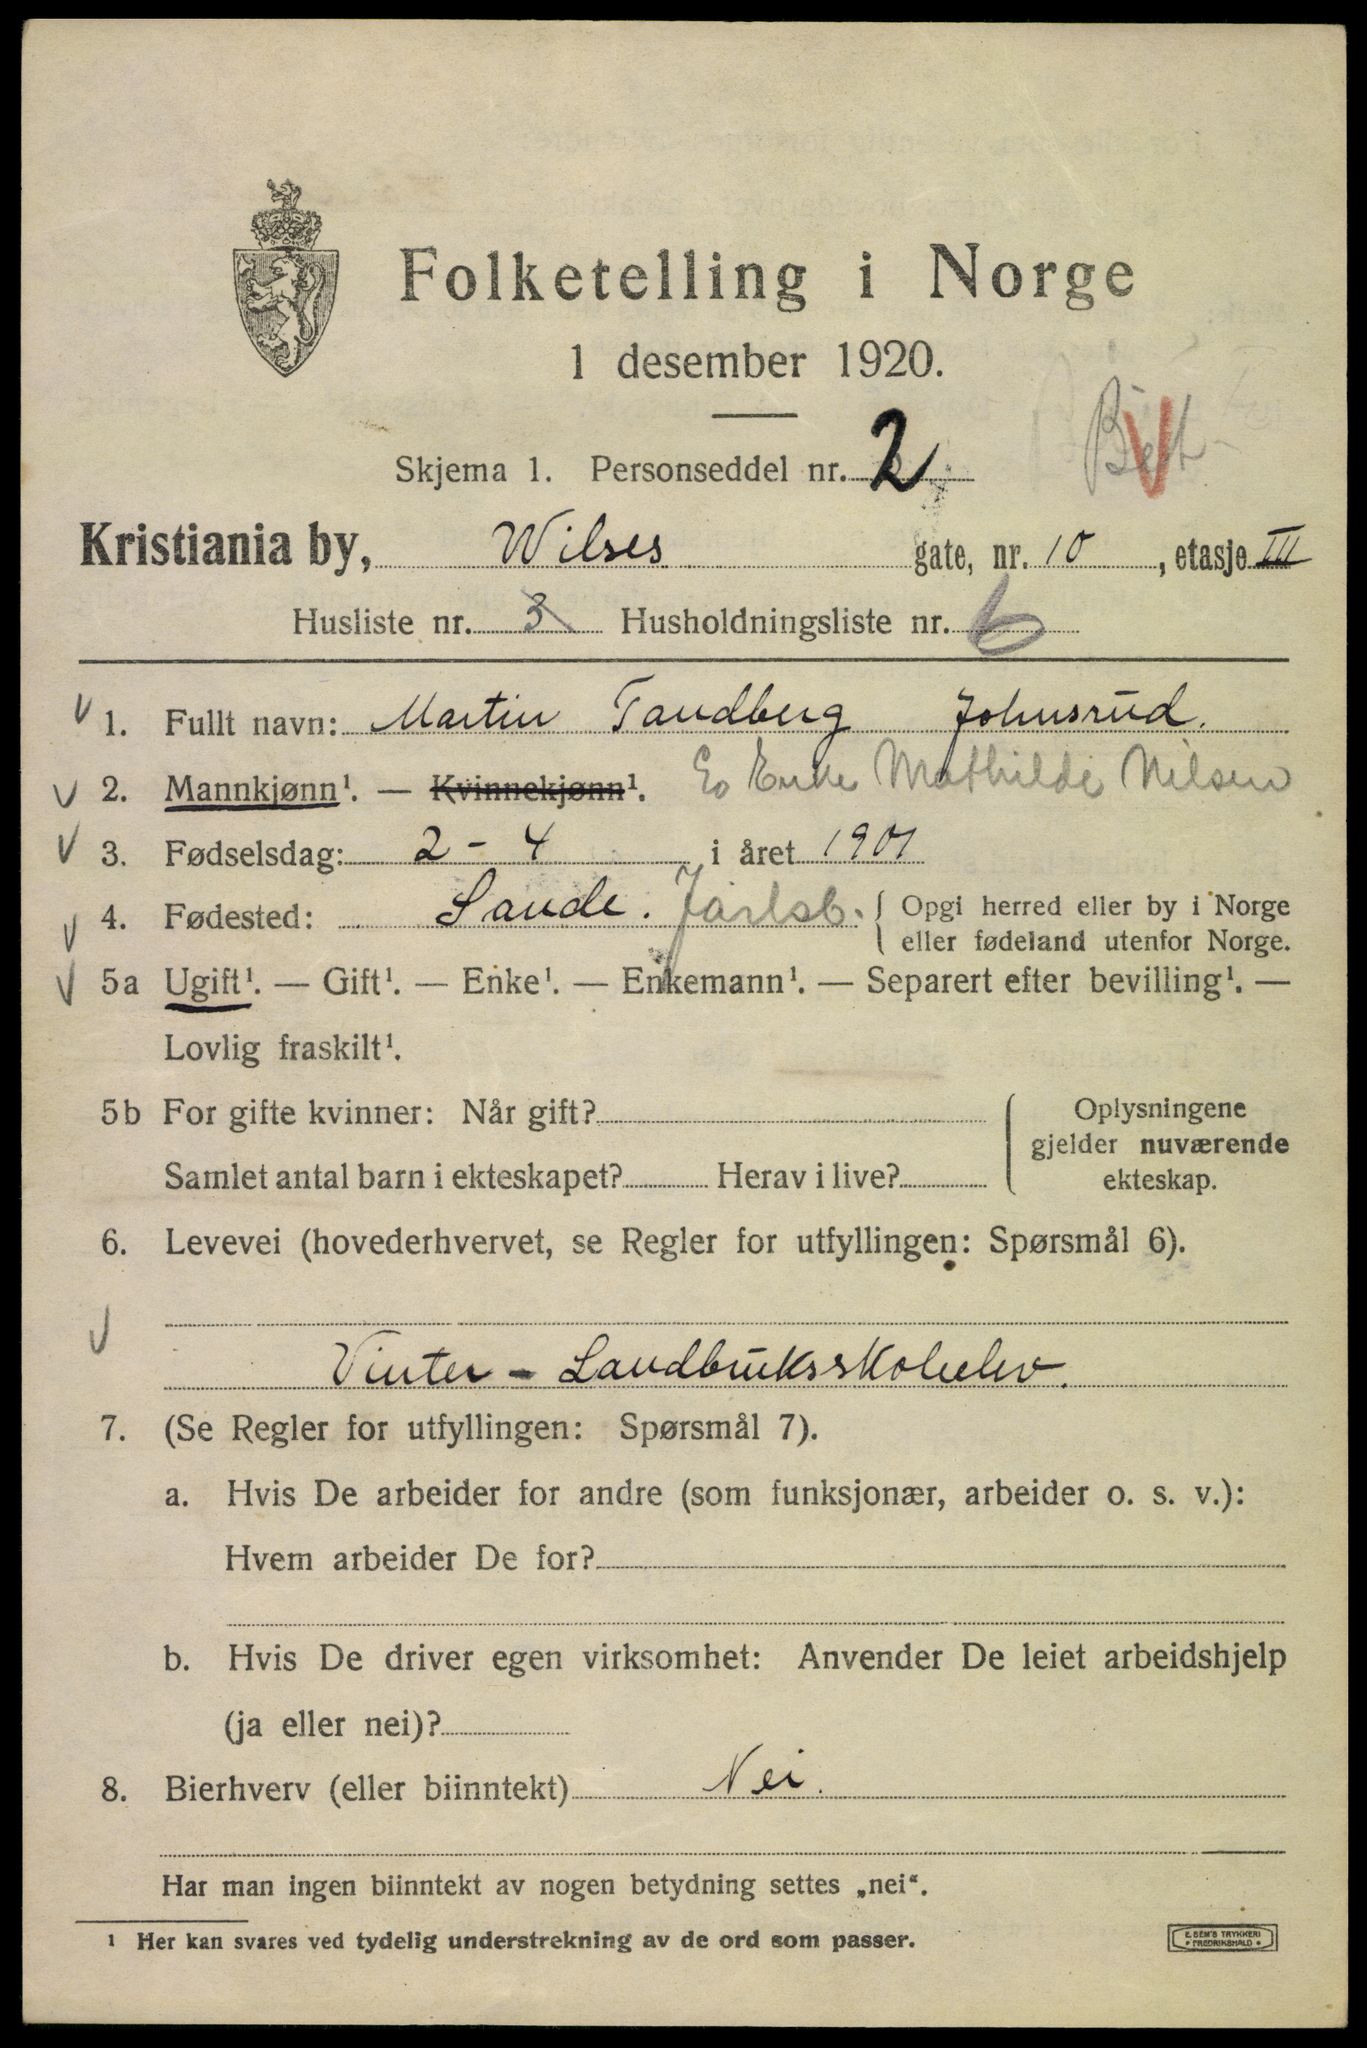 Folketelling i Norge
1 desember 1920.
Skjema 1. Personseddel nr. 2
Kristiania by, Wilses gate, nr. 10, etasje III
Husliste nr. 3 Husholdningsliste nr. 6
1. Fullt navn: Martin Tandberg Johnsrud.
2. Mannkjønn¹. — Kvinnekjønn¹. Enke Mathilde Nilsen
3. Fødselsdag: 2-4 i året 1901
4. Fødested: Sande. Jarlsb. Opgi herred eller by i Norge
eller fødeland utenfor Norge.
5a Ugift¹. — Gift¹. — Enke¹. — Enkemann¹. — Separert efter bevilling¹. —
Lovlig fraskilt¹.
5b For gifte kvinner: Når gift?
Samlet antal barn i ekteskapet? Herav i live?
Oplysningene
gjelder nuværende
ekteskap.
6. Levevei (hovederhvervet, se Regler for utfyllingen: Spørsmål 6).
Vinter - Landbruksskoleelev.
7. (Se Regler for utfyllingen: Spørsmål 7).
a. Hvis De arbeider for andre (som funksjonær, arbeider o. s. v.):
Hvem arbeider De for?
b. Hvis De driver egen virksomhet: Anvender De leiet arbeidshjelp
(ja eller nei)?
8. Bierhverv (eller biinntekt) Nei.
Har man ingen biinntekt av nogen betydning settes „nei“.
¹ Her kan svares ved tydelig understrekning av de ord som passer.
E. SEM'S TRYKKERI
• FREDRIKSHALD •